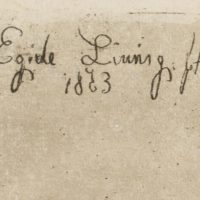 Egide Linnig. ft
1853